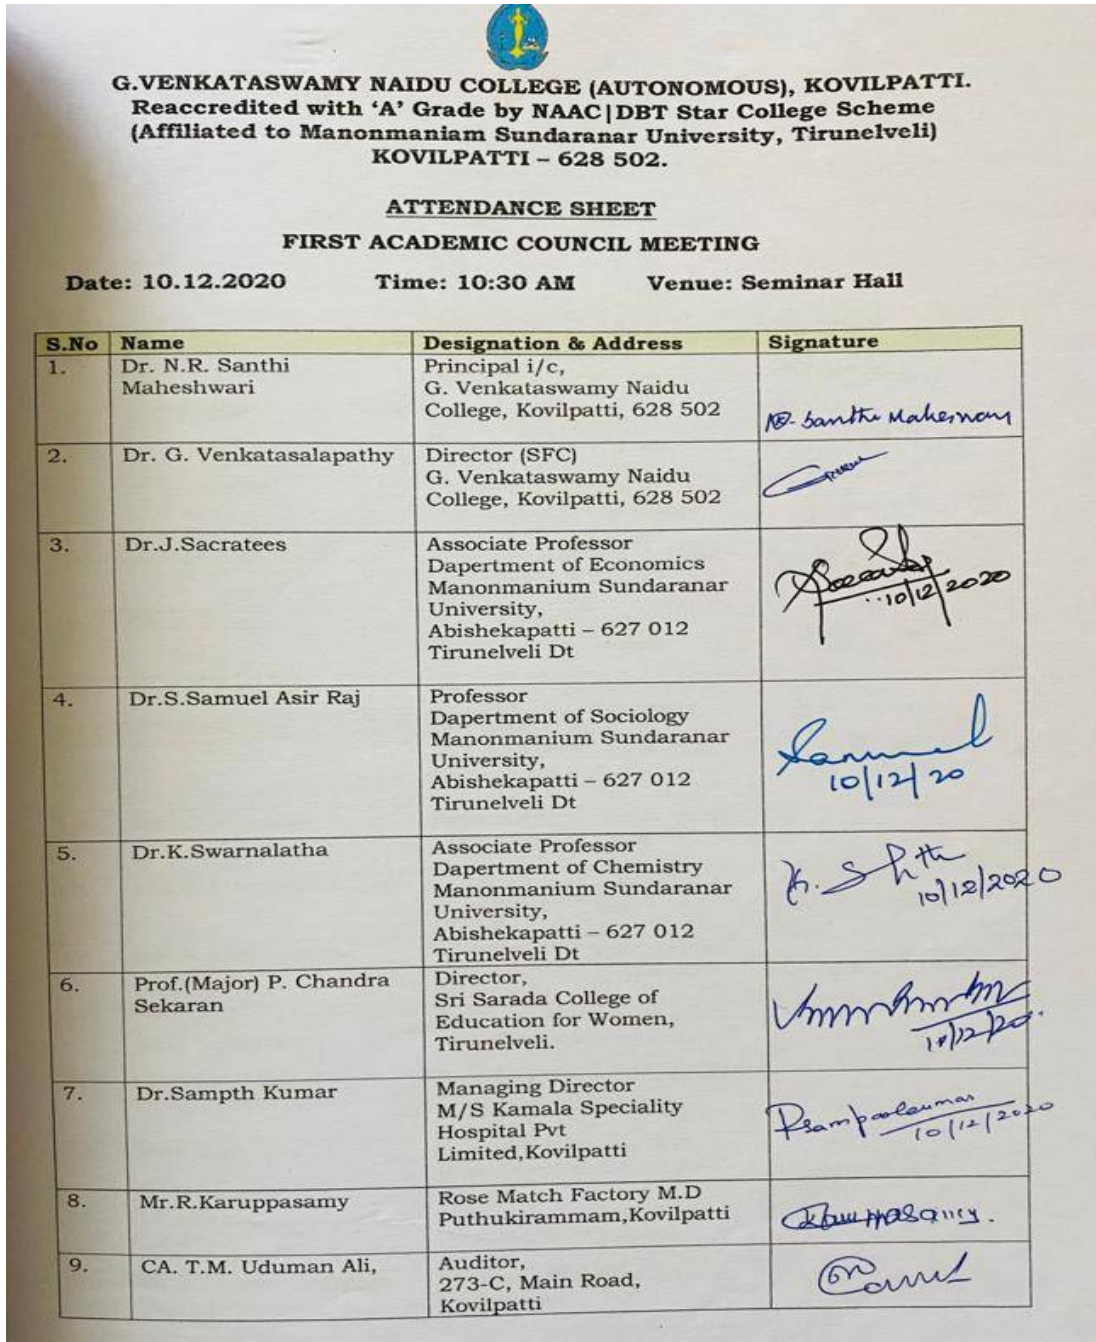 G.VENKATASWAMY NAIDU COLLEGE (AUTONOMOUS), KOVILPATTI.
Reaccredited with ‘A’ Grade by NAAC|DBT Star College Scheme
(Affiliated to Manonmaniam Sundaranar University, Tirunelveli)
KOVILPATTI – 628 502.
ATTENDANCE SHEET
FIRST ACADEMIC COUNCIL MEETING
Date: 10.12.2020 Time: 10:30 AM Venue: Seminar Hall
S.No Name Designation & Address Signature
1. Dr. N.R. Santhi Principal i/c,
Maheshwari G. Venkataswamy Naidu
College, Kovilpatti, 628 502
Santhi Maheswari
2. Dr. G. Venkatasalapathy Director (SFC)
G. Venkataswamy Naidu
College, Kovilpatti, 628 502
3. Dr.J.Sacratees Associate Professor
Dapertment of Economics
Manonmanium Sundaranar
10/12/2020
University,
Abishekapatti – 627 012
Tirunelveli Dt
4. Dr.S.Samuel Asir Raj Professor
Dapertment of Sociology
Manonmanium Sundaranar
Samuel
University,
Abishekapatti – 627 012 10/12/20
Tirunelveli Dt
5. Dr.K.Swarnalatha Associate Professor
Dapertment of Chemistry
Manonmanium Sundaranar 10/12/2020
University,
Abishekapatti – 627 012
Tirunelveli Dt
6. Prof.(Major) P. Chandra Director,
Sekaran Sri Sarada College of
Education for Women,
Tirunelveli. 10/12/20.
7. Dr.Sampth Kumar Managing Director
M/S Kamala Speciality
Hospital Pvt 10/12/2020
Limited,Kovilpatti
8. Mr.R.Karuppasamy Rose Match Factory M.D
Puthukirammam,Kovilpatti
9. CA. T.M. Uduman Ali, Auditor,
273-C, Main Road,
Kovilpatti